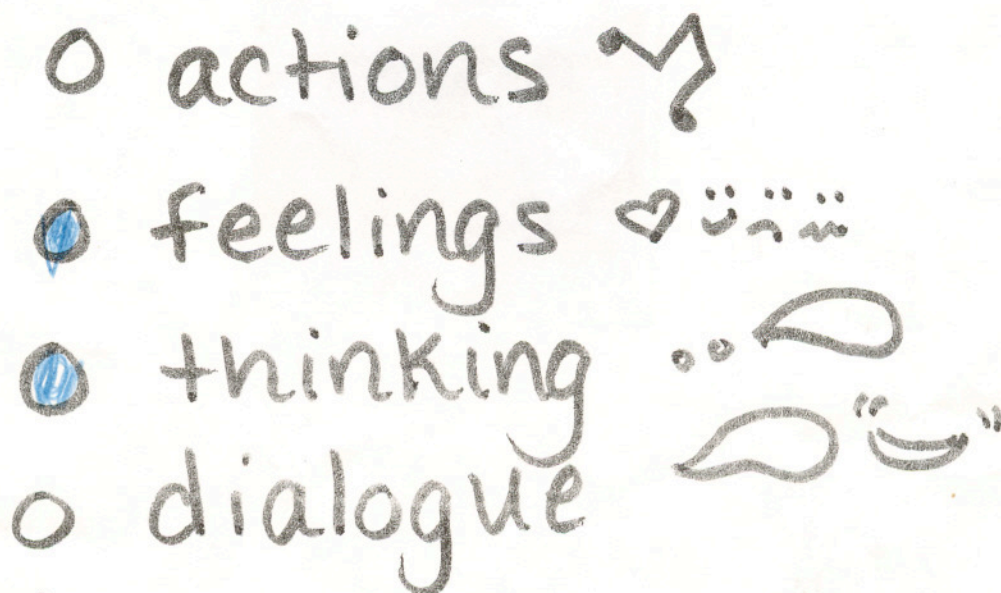 actions
feelings
thinking
dialogue